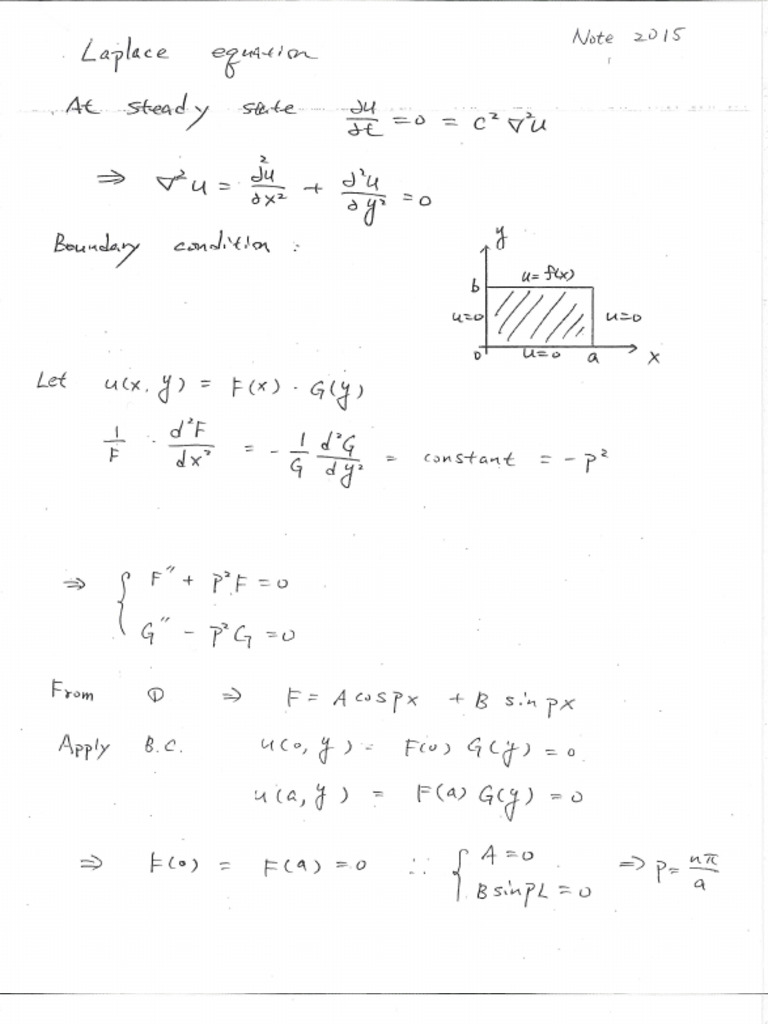 Note 2015
Laplace equation
At steady state ∂u/∂t = 0 = c² ∇²u
⇒ ∇²u = ∂²u/∂x² + ∂²u/∂y² = 0
Boundary condition :
y
b u = f(x)
u=0 u=0
0 u=0 a x
Let u(x, y) = F(x) · G(y)
1/F · d²F/dx² = - 1/G d²G/dy² = constant = - p²
⇒ { F″ + p²F = 0
G″ - p²G = 0
From ① ⇒ F = A cos px + B sin px
Apply B.C. u(0, y) = F(0) G(y) = 0
u(a, y) = F(a) G(y) = 0
⇒ F(0) = F(a) = 0 ∴ { A = 0 ⇒ p = nπ/a
B sin pL = 0